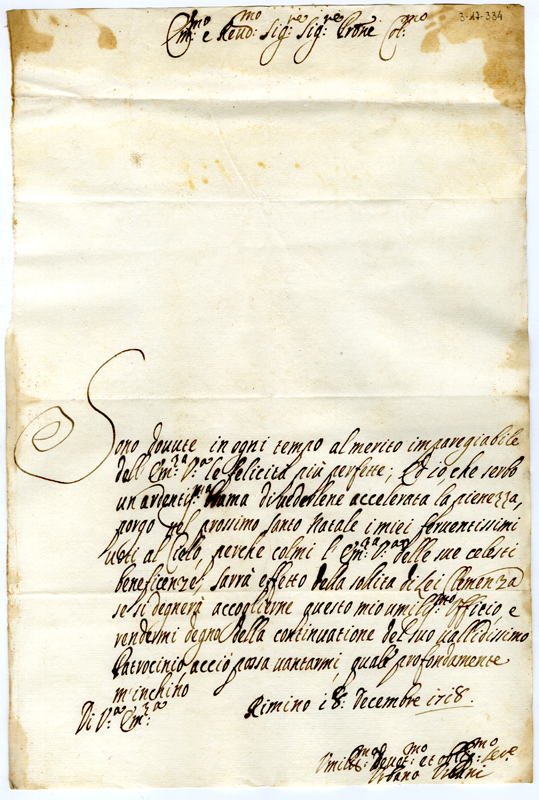 3-17-334
Em:mo e Reud:mo Sig:re Sig:re Prone Col:mo
Sono dovute in ogni tempo al merito imparegiabile
dell'Em:za V:ra le felicità più perfette; Et io, che serbo
un ardentis:ma brama di vederlene accelerata la pienezza,
porgo nel prossimo Santo Natale i miei feruentissimi
uoti al Cielo, perche colmi l'Em:za V:ra delle sue celesti
beneficenze; sarrà effetto della solita di Lei Clemenza
se si degnerà accoglierne questo mio umilis:mo officio, e
rendermi degno della continuatione del suo uallidissimo
Patrocinio, acciò possa uantarmi, quale profondamente
m'inchino
Di V:ra Em:za
Rimino i 8: Decembre 1718.
Vmilis:mo Deuot:mo et oblig:mo Ser:e
Urbano Urbani